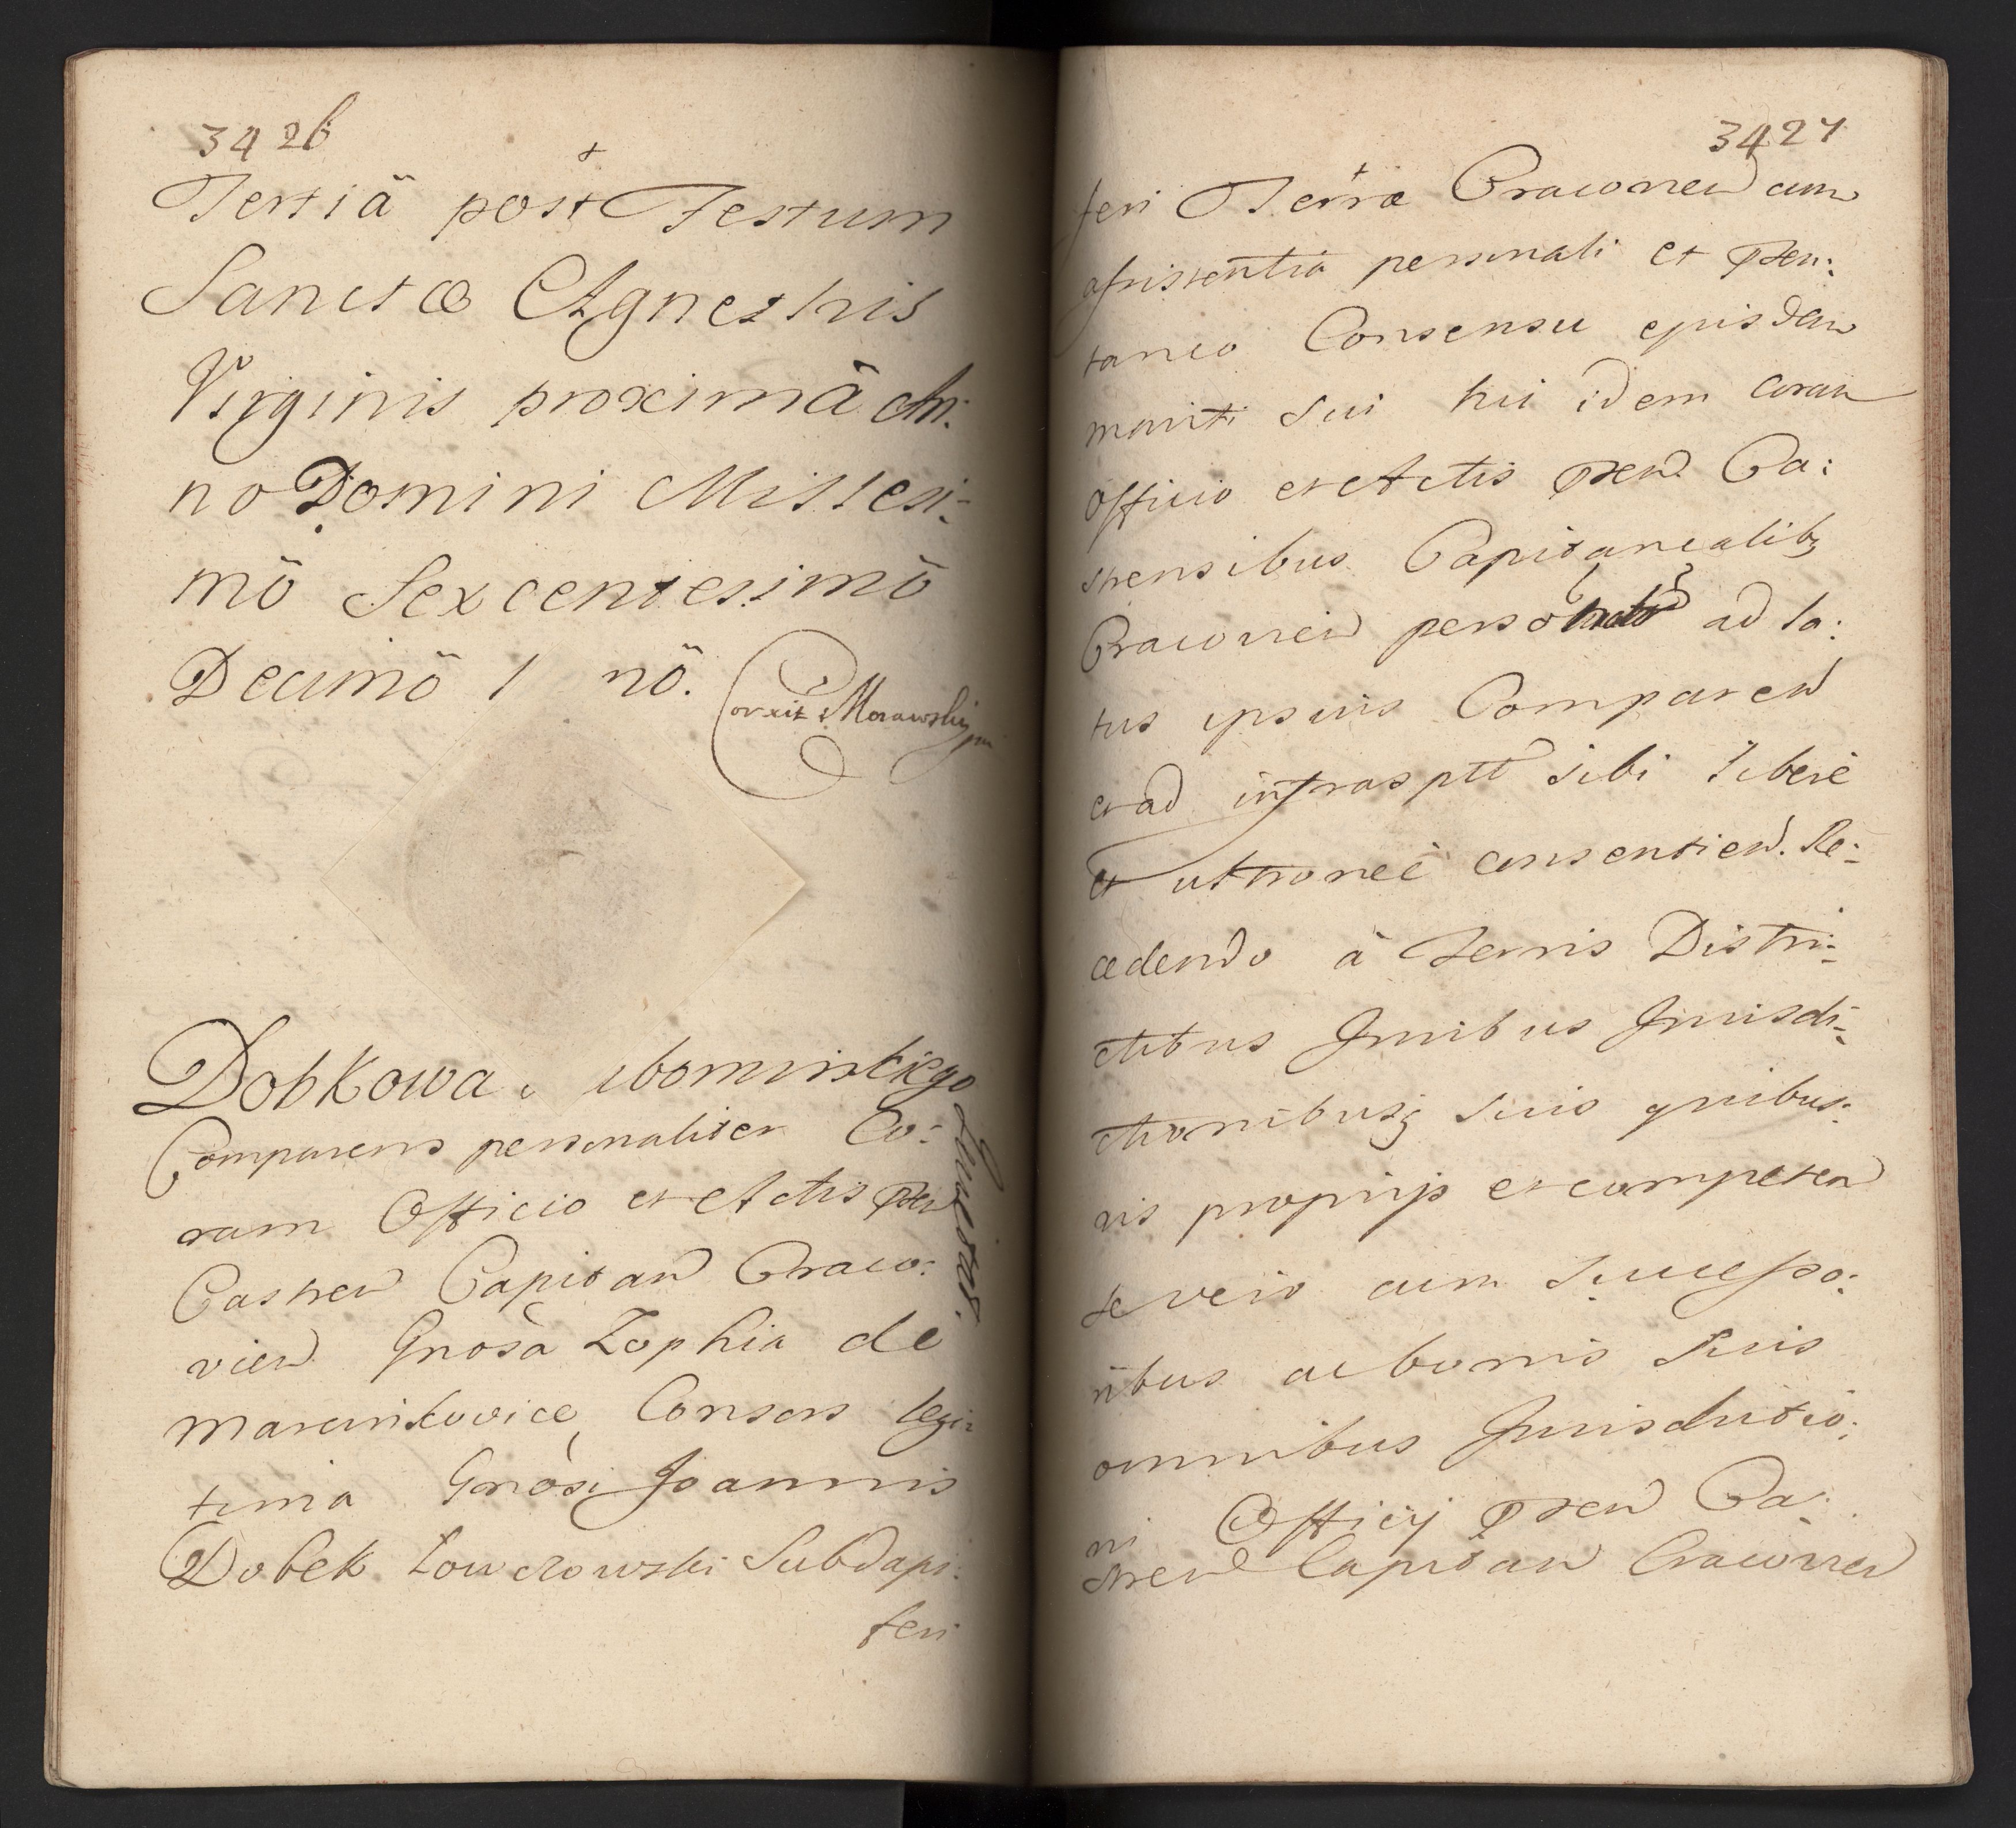 3426
Tertiä post Festum
Sanctæ Agnethis
Virginis proximâ An:
no Domini Millesi:
mö Sexcentesimö
Decimö 1 nö.
Corexit Morawsky mp
Dobkowa ibominskiego
Quietat.
Comparens personaliter Co:
ram Officio et Actis Pten
Castren Capitan Craco:
vien Gnosa Zophia de
Marcinkovice Consors legi:
tima Gnosi Joannis
Dobek Łowczowski Subdapi:
feri
3427
feri Terræ Cracovien cum
assistentia personali et Pten:
taneo Consensu eiusdem
mariti Sui hic idem coram
Officio et Actis Pten Ca:
strensibus Capitanealibq
Cracovien ad la:
tus ipsius Comparen
et ad infrasptt sibi libere
et ultronee consentien. Re:
cedendo à Terris Distri:
ctibus Juribus Jurisdi:
ctionibusq Suis quibus:
vis proprijs et competen
se vero cum Successo:
ribus ac bonis Suis
omnibus Jurisdictio:
ni Officij Pten Ca:
stren Capitan Cracovien